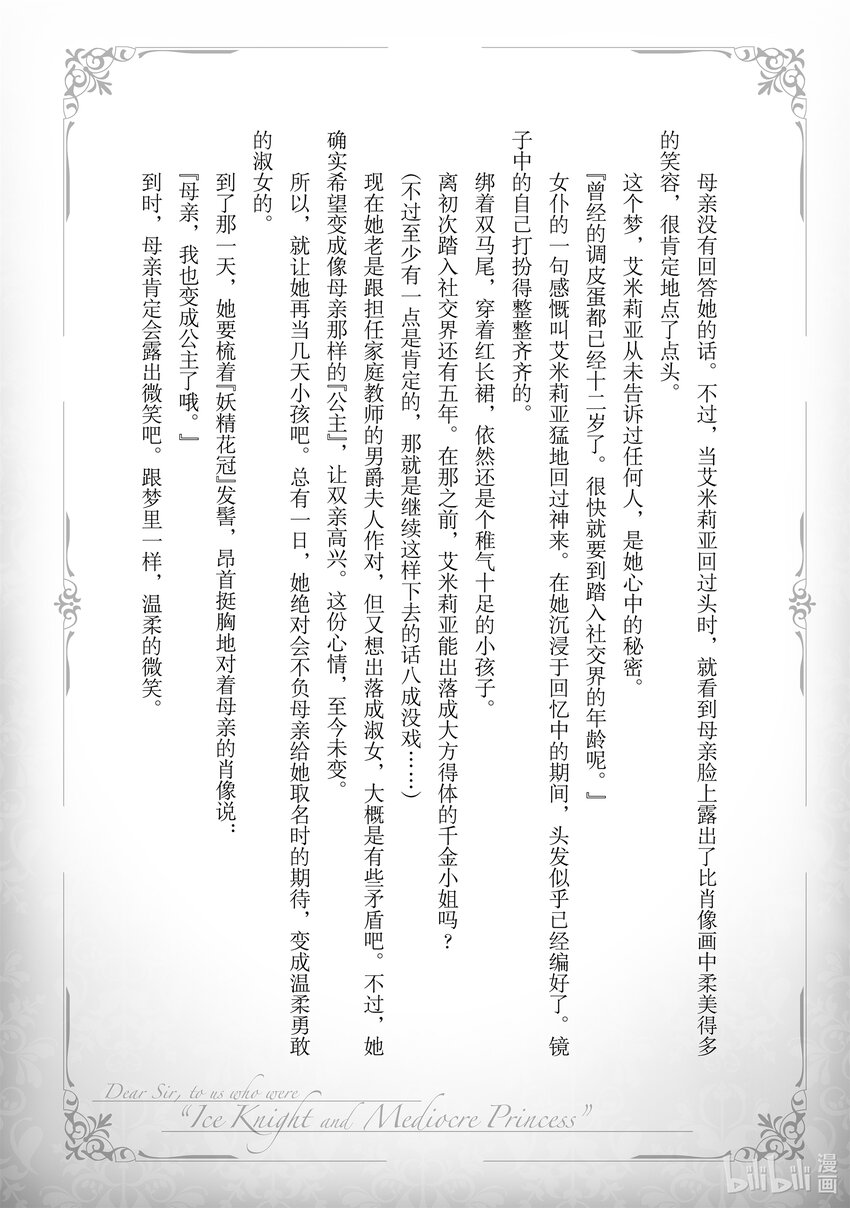 母亲没有回答她的话。不过，当艾米莉亚回过头时，就看到母亲脸上露出了比肖像画中柔美得多
的笑容，很肯定地点了点头。
这个梦，艾米莉亚从未告诉过任何人，是她心中的秘密。
『曾经的调皮蛋都已经十二岁了。很快就要到踏入社交界的年龄呢。』
女仆的一句感慨叫艾米莉亚猛地回过神来。在她沉浸于回忆中的期间，头发似乎已经编好了。镜
子中的自己打扮得整整齐齐的。
绑着双马尾，穿着红长裙，依然还是个稚气十足的小孩子。
离初次踏入社交界还有五年。在那之前，艾米莉亚能出落成大方得体的千金小姐吗？
（不过至少有一点是肯定的，那就是继续这样下去的话八成没戏……）
现在她老是跟担任家庭教师的男爵夫人作对，但又想出落成淑女，大概是有些矛盾吧。不过，她
确实希望变成像母亲那样的『公主』，让双亲高兴。这份心情，至今未变。
所以，就让她再当几天小孩吧。总有一日，她绝对会不负母亲给她取名时的期待，变成温柔勇敢
的淑女的。
到了那一天，她要梳着『妖精花冠』发髻，昂首挺胸地对着母亲的肖像说：
『母亲，我也变成公主了哦。』
到时，母亲肯定会露出微笑吧。跟梦里一样，温柔的微笑。
Dear Sir, to us who were
“Ice Knight and Mediocre Princess”
bilibili 漫画